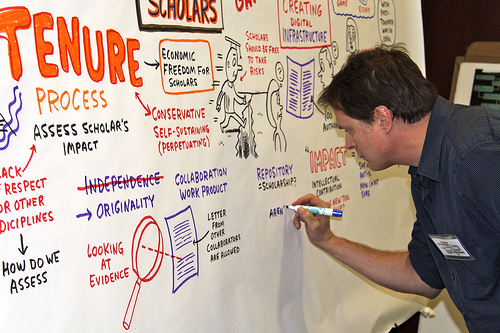 SCHOLARS
TENURE
PROCESS
ASSESS SCHOLAR'S
IMPACT
LACK
OF RESPECT
FOR OTHER
DICIPLINES
HOW DO WE
ASSESS
ECONOMIC
FREEDOM FOR
SCHOLARS
CONSERVATIVE
SELF-SUSTAINING
(PERPETUATING)
INDEPENDENCE
ORIGINALITY
LOOKING
AT
EVIDENCE
COLLABORATION
WORK PRODUCT
LETTER
FROM
OTHER
COLLABORATORS
ARE ALLOWED
SCHOLARS
SHOULD BE FREE
TO TAKE
RISKS
CREATING
DIGITAL
INFRASTRUCTURE
REPOSITORY
=SCHOLARSHIP?
AREN
"IMPACT
INTELLECTUAL
CONTRIBUTION